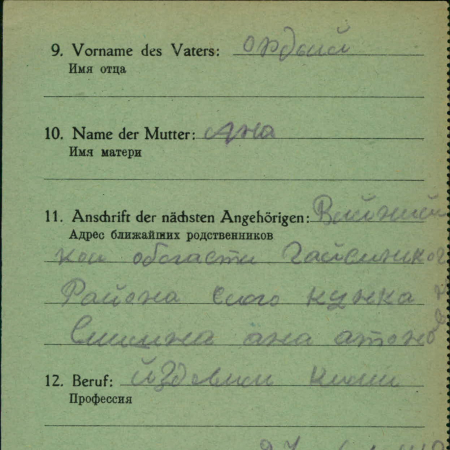 9. Vorname des Vaters: ордый
Имя отца
10. Name der Mutter: Ана
Имя матери
11. Anschrift der nächsten Angehörigen:
Адрес ближайших родственников
кои обогасти Гайсинког
Района сило кунка
ана
12. Beruf:
Профессия